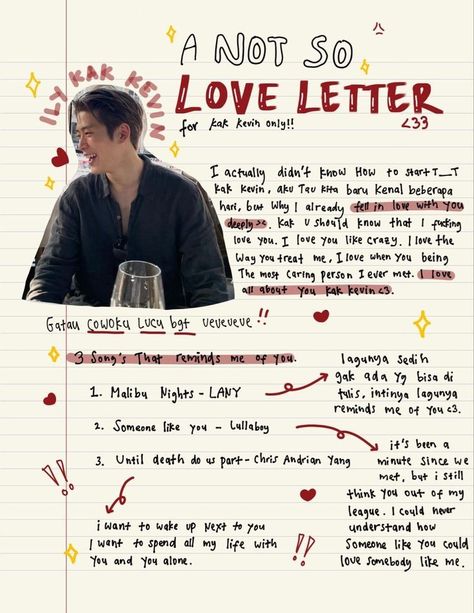 A NOT SO
LOVE LETTER
for kak kevin only!!
<33
ILY KAK KEVIN
I actually didn't know How to start T_T
kak kevin, aku Tau kita baru kenal beberapa
hari, but why I already fell in love with you
deeply><. kak u should know that I fucking
love you. I love you like crazy. I love the
way you treat me, I love when you being
The most caring person I ever met. I love
all about you kak kevin <3.
Gatau cowoku Lucu bgt veveveve !!
3 song's That reminds me of you.
1. Malibu Nights - LANY
lagunya sedih
gak ada yg bisa di
tulis, intinya lagunya
reminds me of you <3.
2. Someone like you - Lullaboy
it's been a
minute since we
met, but i still
think you out of my
league. I could never
understand how
Someone like you could
love somebody like me.
3. Until death do us part - Chris Andrian Yang
i want to wake up next to you
I want to spend all my life with
you and you alone.
!!
!!